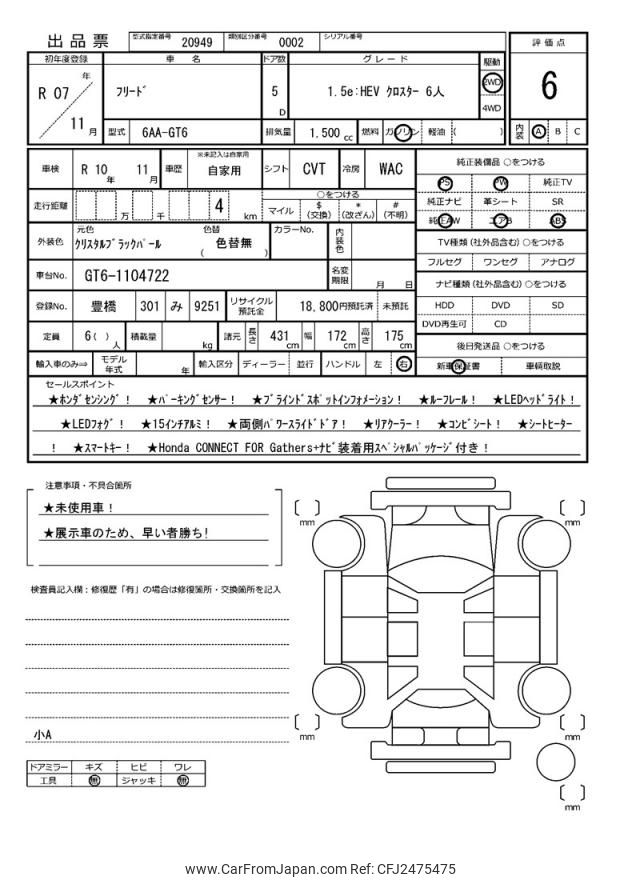 出品票 型式指定番号 20949 類別区分番号 0002 シリアル番号
評価点
6
内装 A B C
初年度登録 車名 ドア数 グレード 駆動
R 07 年 11 月 フリード 5 D 1.5e:HEV クロスター 6人 2WD 4WD
型式 6AA-GT6 排気量 1.500 cc 燃料 ガソリン 軽油 ( )
車検 R 10 年 11 月 車歴 ※未記入は自家用 自家用 シフト CVT 冷房 WAC
走行距離 万 千 4 km ○をつける
マイル $(交換) *(改ざん) #(不明)
外装色 元色 クリスタルブラックパール 色替 ( 色替無 ) カラーNo. 内装色
車台No. GT6-1104722 名変期限 月 日
登録No. 豊橋 301 み 9251 リサイクル預託金 18,800円預託済 未預託
定員 6( )人 積載量 kg 諸元 長さ 431 cm 幅 172 cm 高さ 175 cm
輸入車のみ⇒ モデル年式 年 輸入区分 ディーラー 並行 ハンドル 左 右
純正装備品 ○をつける
PS PW 純正TV
純正ナビ 革シート SR
純正AW エアB ABS
TV種類 (社外品含む) ○をつける
フルセグ ワンセグ アナログ
ナビ種類 (社外品含む) ○をつける
HDD DVD SD
DVD再生可 CD
後日発送品 ○をつける
新車保証書 車輌取説
セールスポイント
★ホンダセンシング! ★パーキングセンサー! ★ブラインドスポットインフォメーション! ★ルーフレール! ★LEDヘッドライト!
★LEDフォグ! ★15インチアルミ! ★両側パワースライドドア! ★リアクーラー! ★コンビシート! ★シートヒーター
! ★スマートキー! ★Honda CONNECT FOR Gathers+ナビ装着用スペシャルパッケージ付き!
注意事項・不具合箇所
★未使用車!
★展示車のため、早い者勝ち!
検査員記入欄:修復歴「有」の場合は修復箇所・交換箇所を記入
小A
ドアミラー キズ ヒビ ワレ
工具 無 ジャッキ 無
[ ] mm
[ ] mm
[ ] mm
[ ] mm
[ ] mm
www.CarFromJapan.com Ref: CFJ2475475